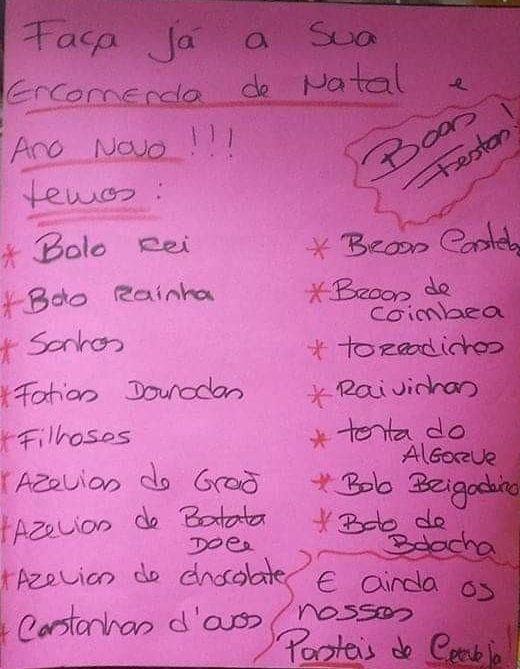 Faça já a Sua
Encomenda de Natal e
Ano Novo !!!
Boas
Festas!
temos:
* Bolo Rei
* Bolo Rainha
* Sonhos
* Fatias Douradas
* Filhoses
* Azevias de Grão
* Azevias de Batata
Doce
* Azevias de chocolate
* Castanhas d'ovos
* Broas Castela
* Broas de
Coimbra
* torradinhos
* Raivinhas
* torta do
Algarve
* Bolo Brigadeiro
* Bolo de
Bolacha
E ainda os
nossos
Pasteis de Cerveja